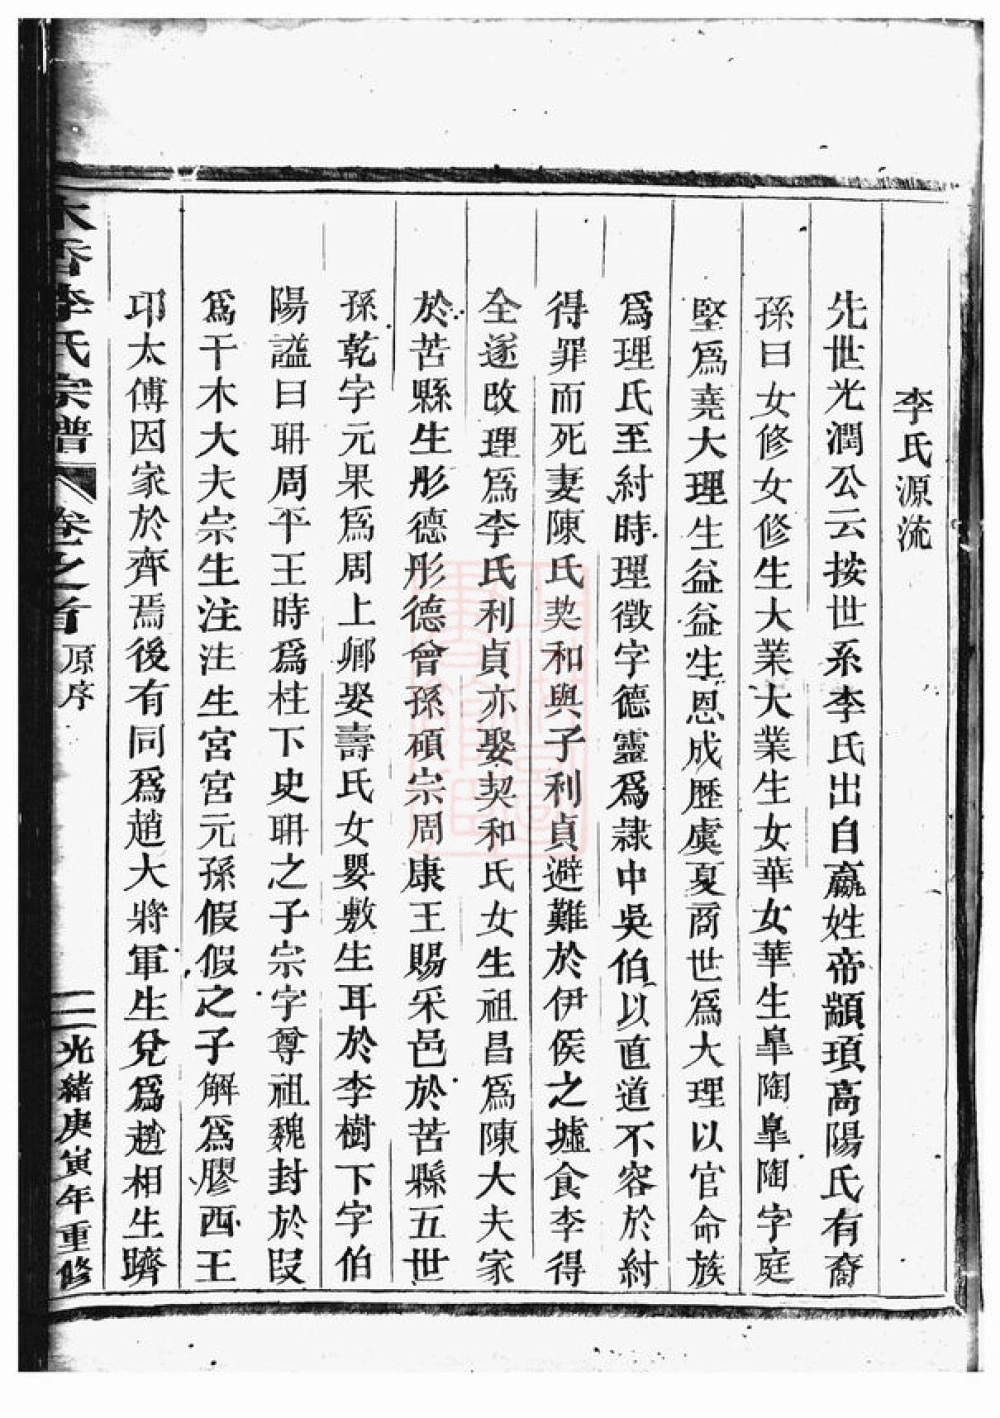 李氏源流
先世光潤公云按世系李氏出自嬴姓帝顓頊高陽氏有裔
孫曰女修女修生大業大業生女華女華生臯陶臯陶字庭
堅爲堯大理生益益生恩成歷虞夏商世爲大理以官命族
爲理氏至紂時理徵字德靈爲隷中吳伯以直道不容於紂
得罪而死妻陳氏契和與子利貞避難於伊侯之墟食李得
全遂改理爲李氏利貞亦娶契和氏女生祖昌爲陳大夫家
於苦縣生彤德彤德曾孫碩宗周康王賜采邑於苦縣五世
孫乾字元果爲周上卿娶壽氏女嬰敷生耳於李樹下字伯
陽謚曰聃周平王時爲柱下史聃之子宗字尊祖魏封於叚
爲干木大夫宗生注注生宮宮元孫假假之子解爲膠西王
卭太傅因家於齊焉後有同爲趙大將軍生兌爲趙相生躋
木香李氏宗譜 卷之首 原序 二 光緒庚寅年重修